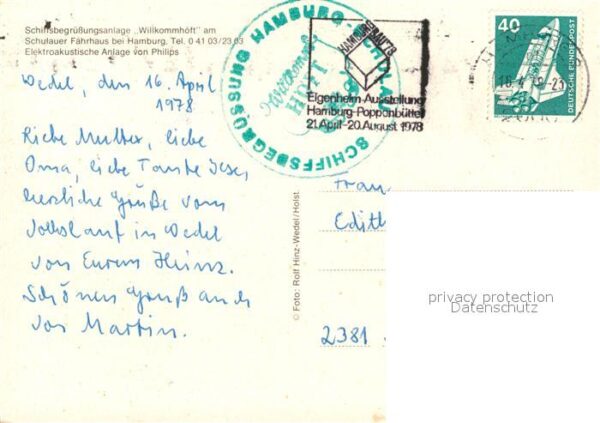 Schiffsbegrüßungsanlage „Willkommhöft" am
Schulauer Fährhaus bei Hamburg, Tel. 0 41 03/23 03
Elektroakustische Anlage von Philips
Wedel, den 16. April
1978
Liebe Mutter, liebe
Oma, liebe Tante
herzliche Grüße vom
Volkslauf in Wedel
von Eurem Heinz.
Schönen Gruß auch
von Martin.
SCHIFFSBEGRÜSSUNG HAMBURG
HÖFT
HAMBURG BAUT 78
Eigenheim-Ausstellung
Hamburg-Poppenbüttel
21. April-20. August 1978
40
DEUTSCHE BUNDESPOST
© Foto: Rolf Hinz-Wedel/Holst.
Frau
Edith
2381
privacy protection
Datenschutz